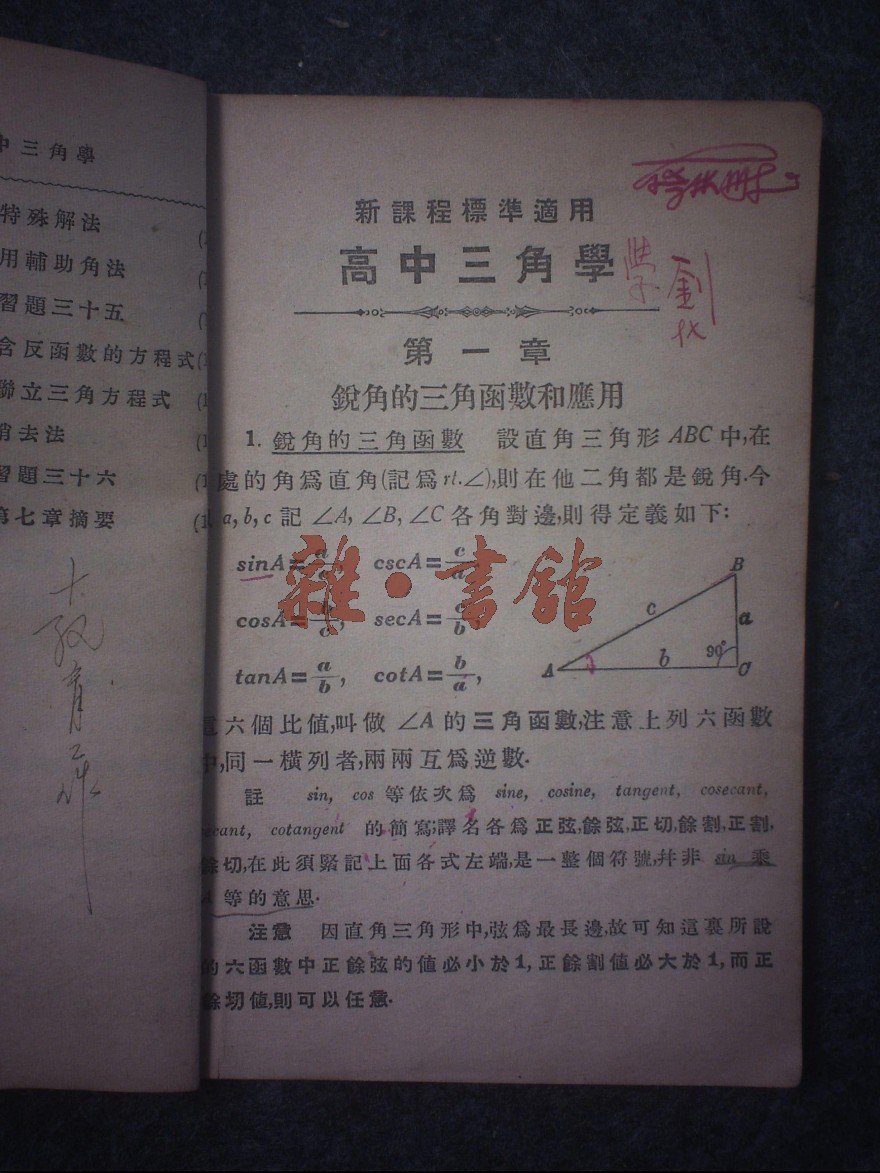 中三角學
特殊解法
用輔助角法
習題三十五
含反函數的方程式
聯立三角方程式
消去法
習題三十六
第七章摘要
教育
新課程標準適用
高中三角學
學 劉
第一章
銳角的三角函數和應用
1. 銳角的三角函數 設直角三角形 ABC 中,在
處的角爲直角(記爲 rt.∠),則在他二角都是銳角.今
a, b, c 記 ∠A, ∠B, ∠C 各角對邊,則得定義如下:
sinA= a cscA= c/a
cosA= b/c, secA= c/b,
tanA= a/b, cotA= b/a,
B
c
a
A
b
90°
C
雜·書館
這六個比值,叫做 ∠A 的三角函數,注意上列六函數
中,同一橫列者,兩兩互爲逆數.
註 sin, cos 等依次爲 sine, cosine, tangent, cosecant,
secant, cotangent 的簡寫;譯名各爲正弦,餘弦,正切,餘割,正割,
餘切,在此須緊記上面各式左端,是一整個符號,幷非 sin 乘
A 等的意思.
注意 因直角三角形中,弦爲最長邊,故可知這裏所說
的六函數中正餘弦的値必小於1,正餘割値必大於1,而正
餘切値,則可以任意.